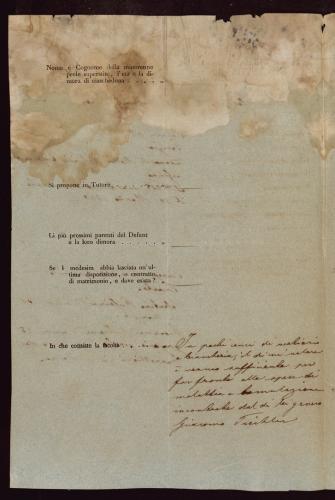 Nome e Cognome della maggiorenne
prole superstite, l'età e la di-
mora di medesima . . . . .
Si propone in Tutore
Li più prossimi parenti del Defunt
e la loro dimora . . . . . .
Se i medesimi abbia lasciata un'ul-
tima disposizione, o contratto
di matrimonio, e dove esista?
In che consiste la facoltà . . .
In pochi cenci di vestiario
e biancheria, il di cui valore
è sufficiente per
far fronte alle spese di
malattia e tumulazione
incontrate dal di lui genero
Giacomo